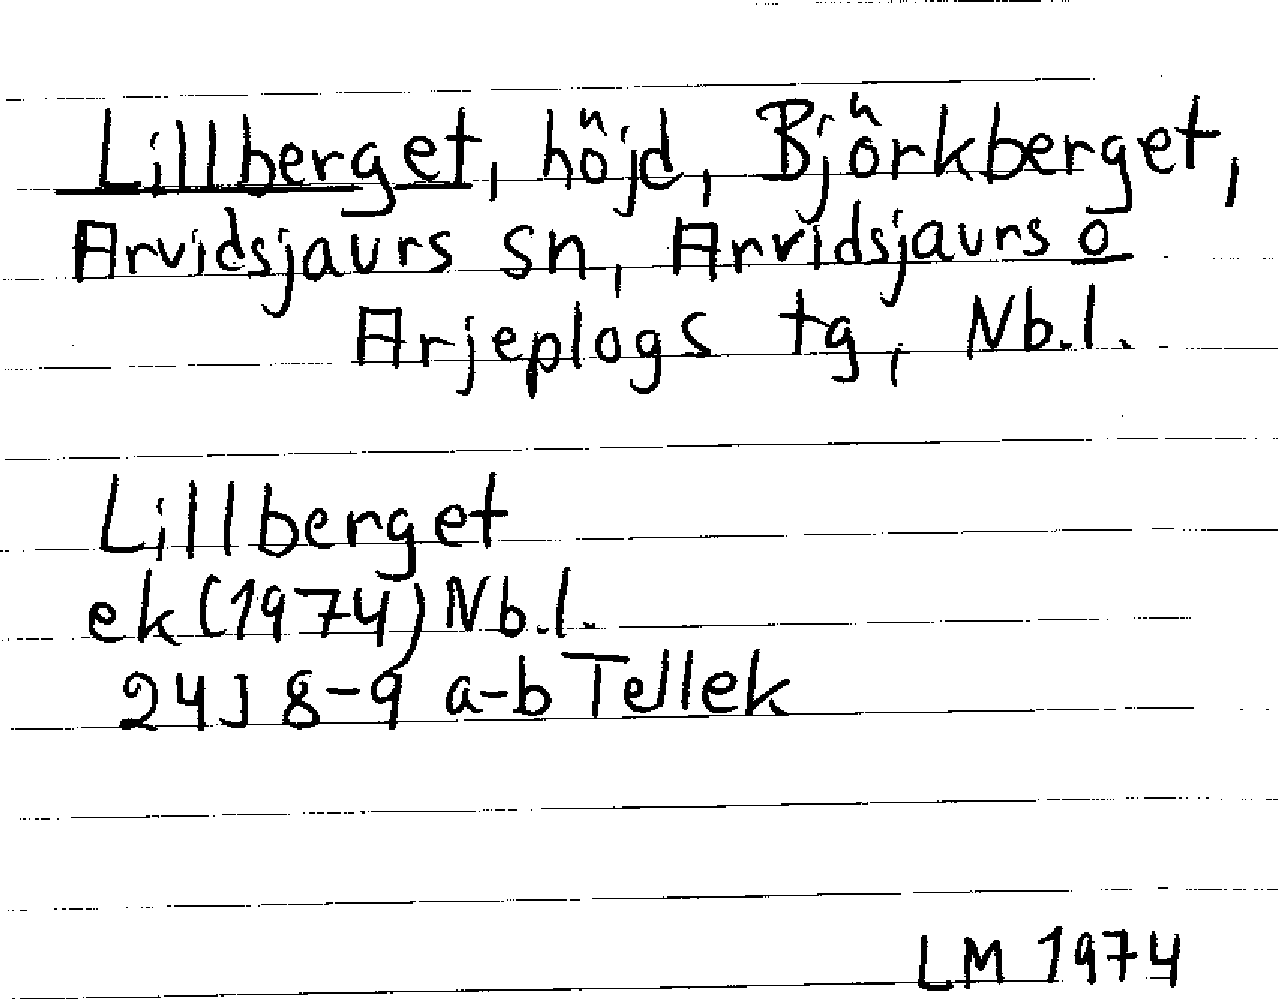 Lillberget, höjd, Björkberget,
Arvidsjaurs sn, Arvidsjaurs o
Arjeplogs tg, Nb.l.
Lillberget
ek (1974) Nb.l.
24J 8-9 a-b Tellek
LM 1974